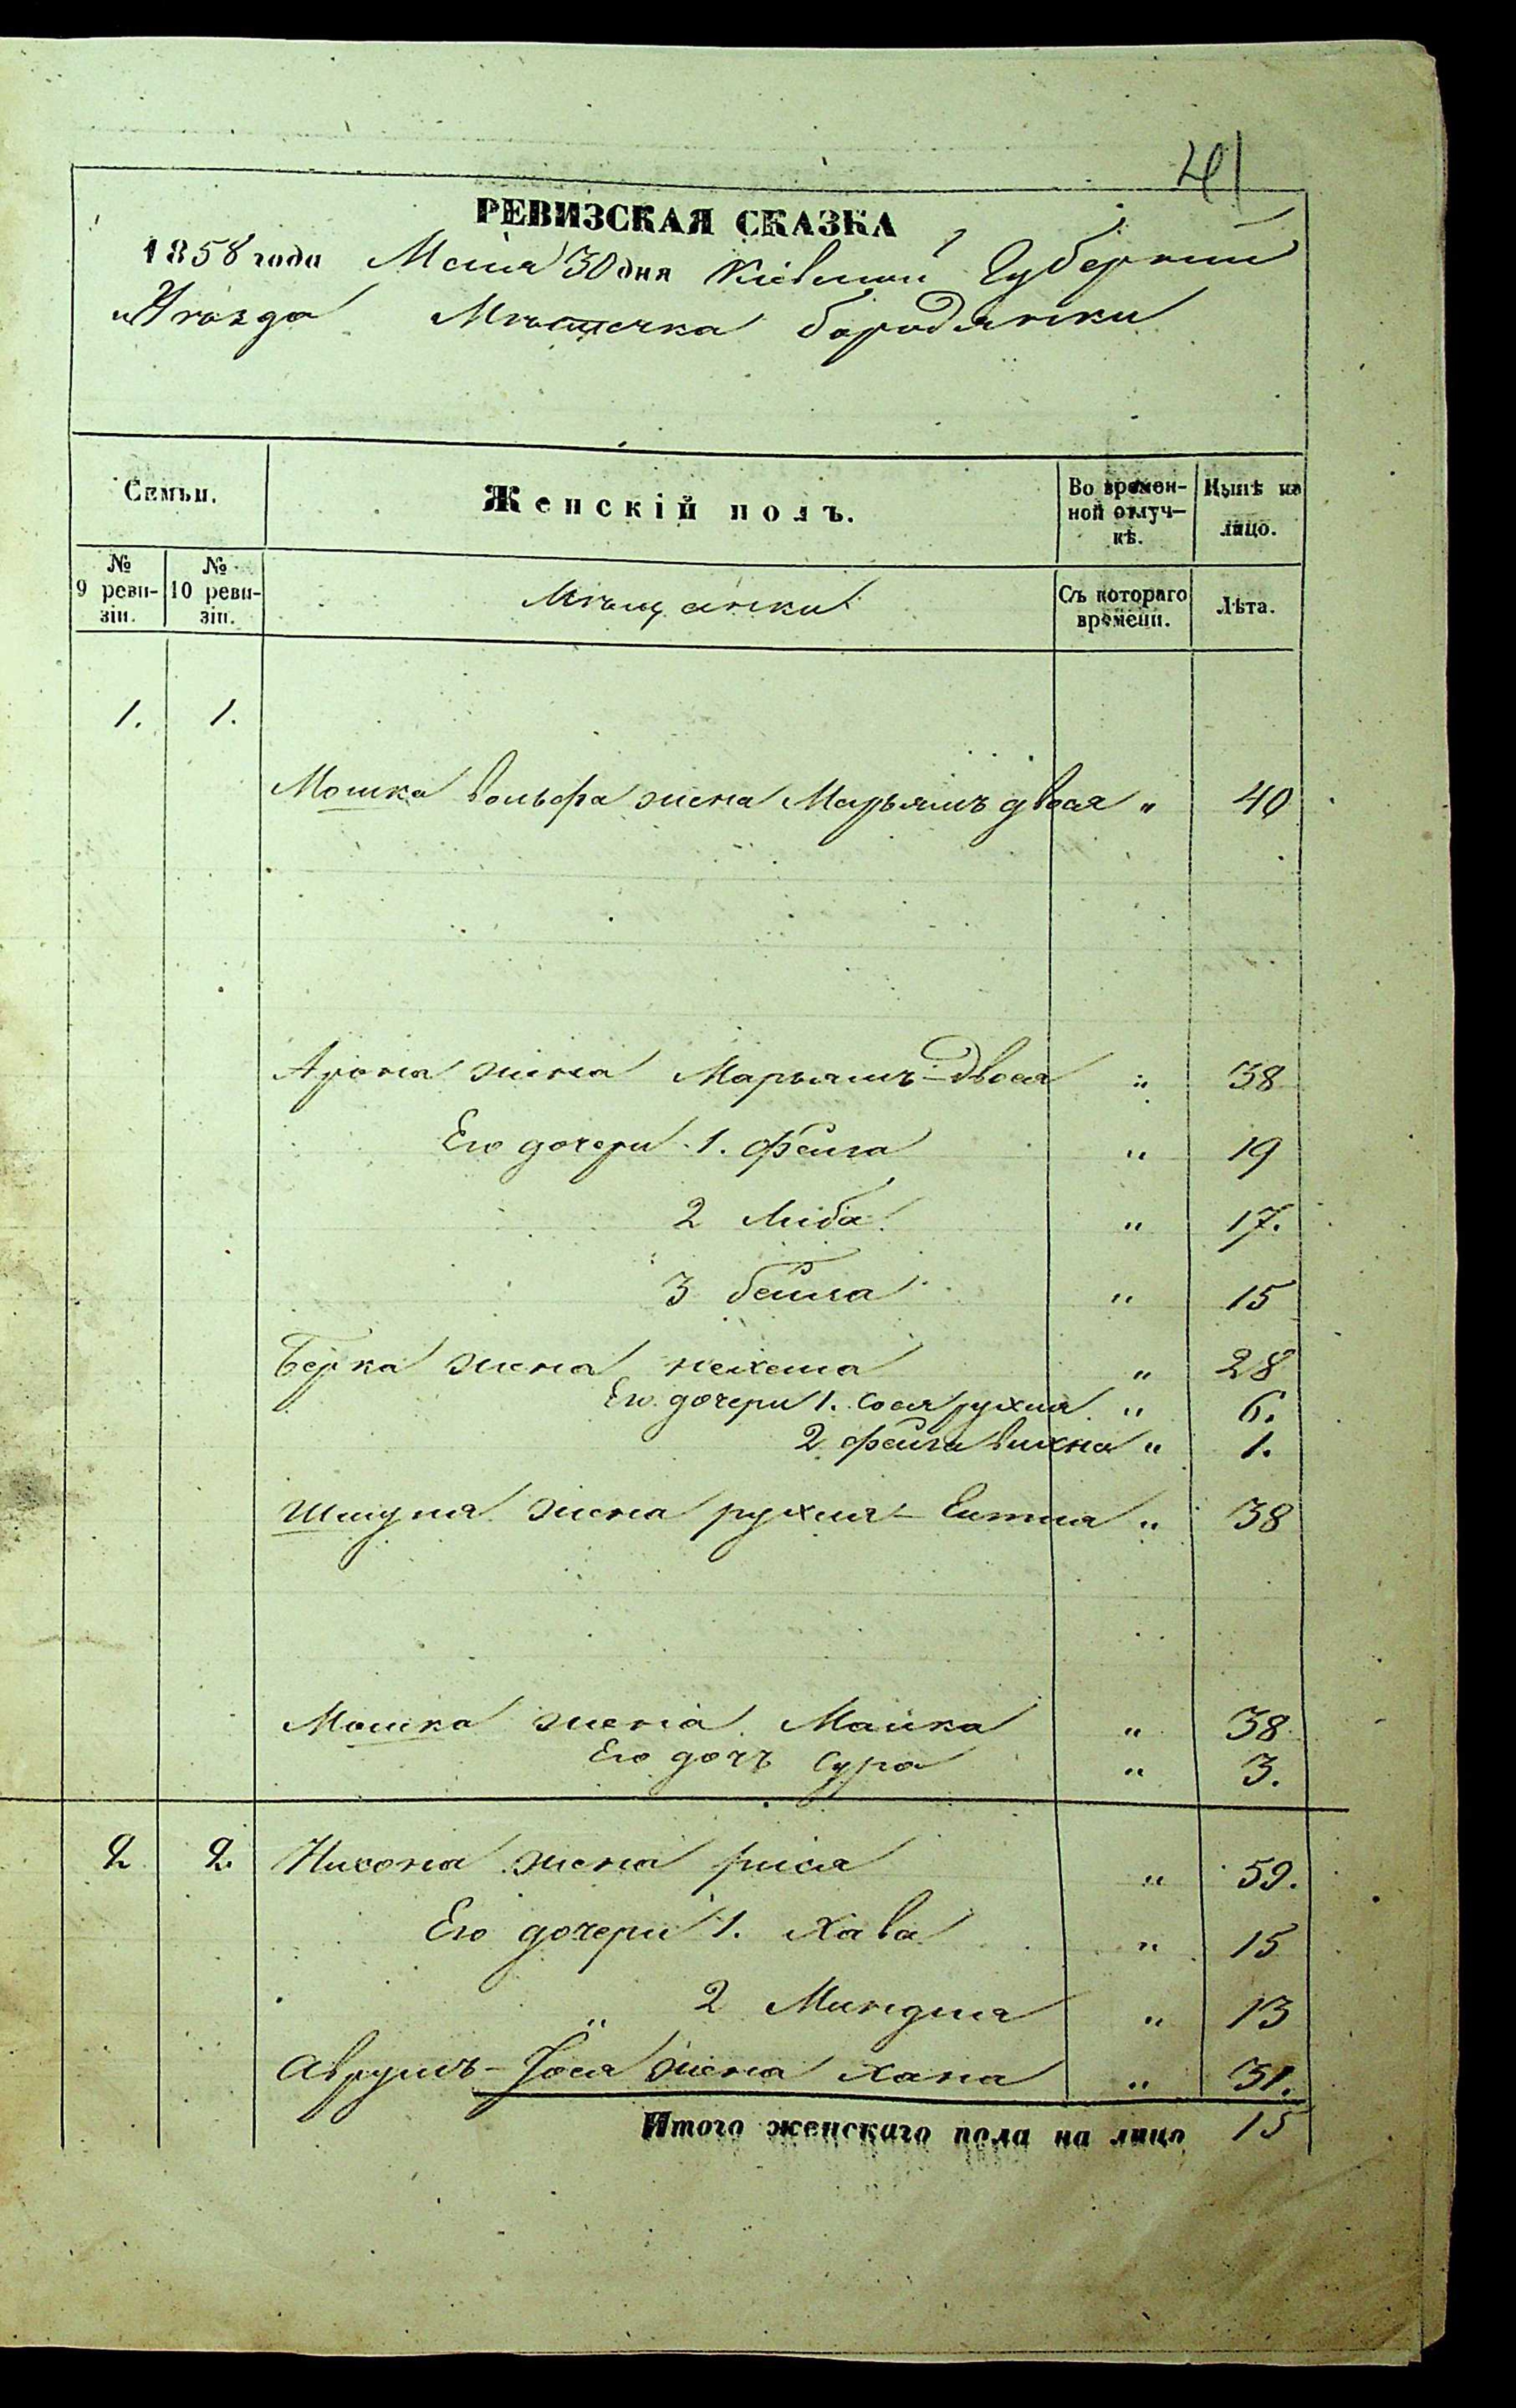 41
РЕВИЗСКАЯ СКАЗКА
1858 года Маія 30 дня Кіевской Губерніи
и Уѣзда Мѣстечка Бородянки
Семьи. Женскій полъ. Во времен-ной отлуч-кѣ. Нынѣ на лицо.
№ 9 реви-зіи. № 10 реви-зіи. Мѣщанки Съ котораго времени. Лѣта.
1. 1.
Мошка Вольфа жена Марьямъ двося " 40
Арона жена Марьямъ-Двося " 38
Его дочери 1. Фейга " 19
2 Либа " 17.
3 Бейла " 15
Берка жена Нехама " 28
Его дочери 1. Сося рухля " 6.
2 Фейга Вихна " 1.
Шмуля жена рухля-Ентля " 38
Мошка жена Малка " 38
Его дочь Сура " 3.
2 2. Нисона жена рися " 59.
Его дочери 1. Хава " 15
2 Миндля " 13
Аврумъ-Іося жена Хана " 31.
Итого женскаго пола на лицо 15